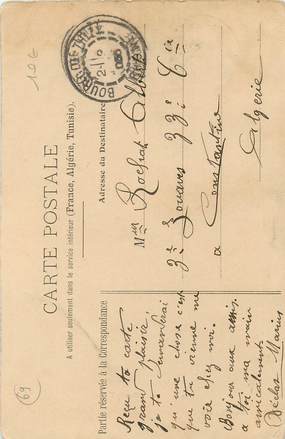 10€
BOURG-DE-THIZY
CARTE POSTALE
A utiliser seulement dans le service intérieur (France, Algérie, Tunisie).
Partie réservée à la Correspondance
Adresse du Destinataire
Reçu ta carte
grand plaisir
je te demanderai
qu une chose c'est
que tu vienne me
voir chez moi.
Bonjour aux amis
à toi ma main
amicalement
Marius
Mr Rochat
3e Zouaves 33e Cie
a Constantine
Algérie
69